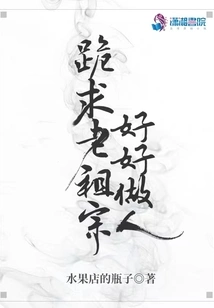 潇湘書院
跪求老祖宗
好好做人
水果店的瓶子◎著